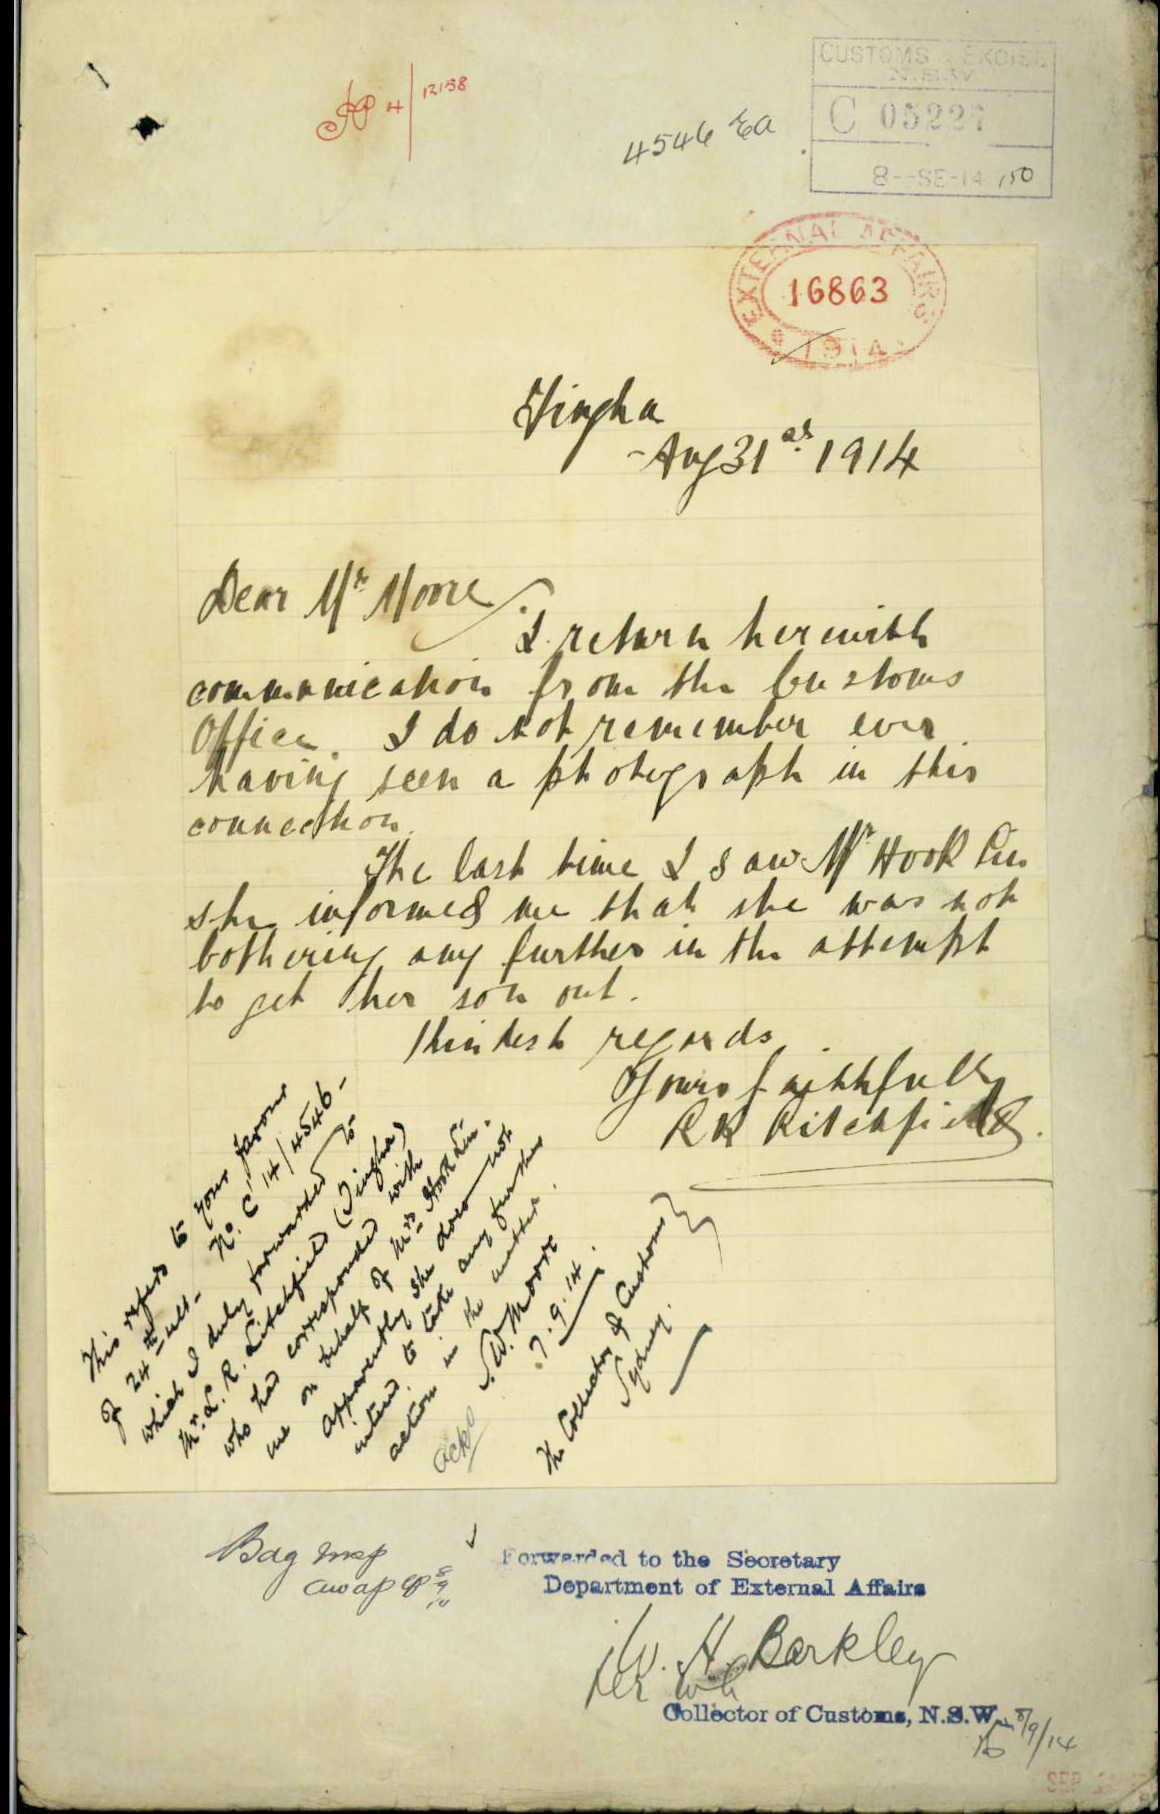 4/12158
4546 Ea
CUSTOMS & EXCISE
N.S.W.
C 05227
8--SE-14 150
EXTERNAL AFFAIRS
16863
1914
Tingha
Aug 31st 1914
Dear Mr Moore,
I return herewith
communication from the Customs
Office. I do not remember ever
having seen a photograph in this
connection.
The last time I saw Mrs Hook Lin
she informed me that she was not
bothering any further in the attempt
to get her son out.
Kindest regards
Yours faithfully
Litchfield.
This refers to your favour
of 24th ult. No. C 14/4546 -
which I duly forwarded to
Mr. L. R. Litchfield (Tingha)
who had corresponded with
me on behalf of Mrs Hook Lin.
Apparently she does not
intend to take any further
action in the matter.
S.W. Moore
7.9.14.
The Collector of Customs
Sydney.
ackd
Bag
Forwarded to the Secretary
Department of External Affairs
W. H. Barkley
Collector of Customs, N.S.W.
8/9/14
SEP